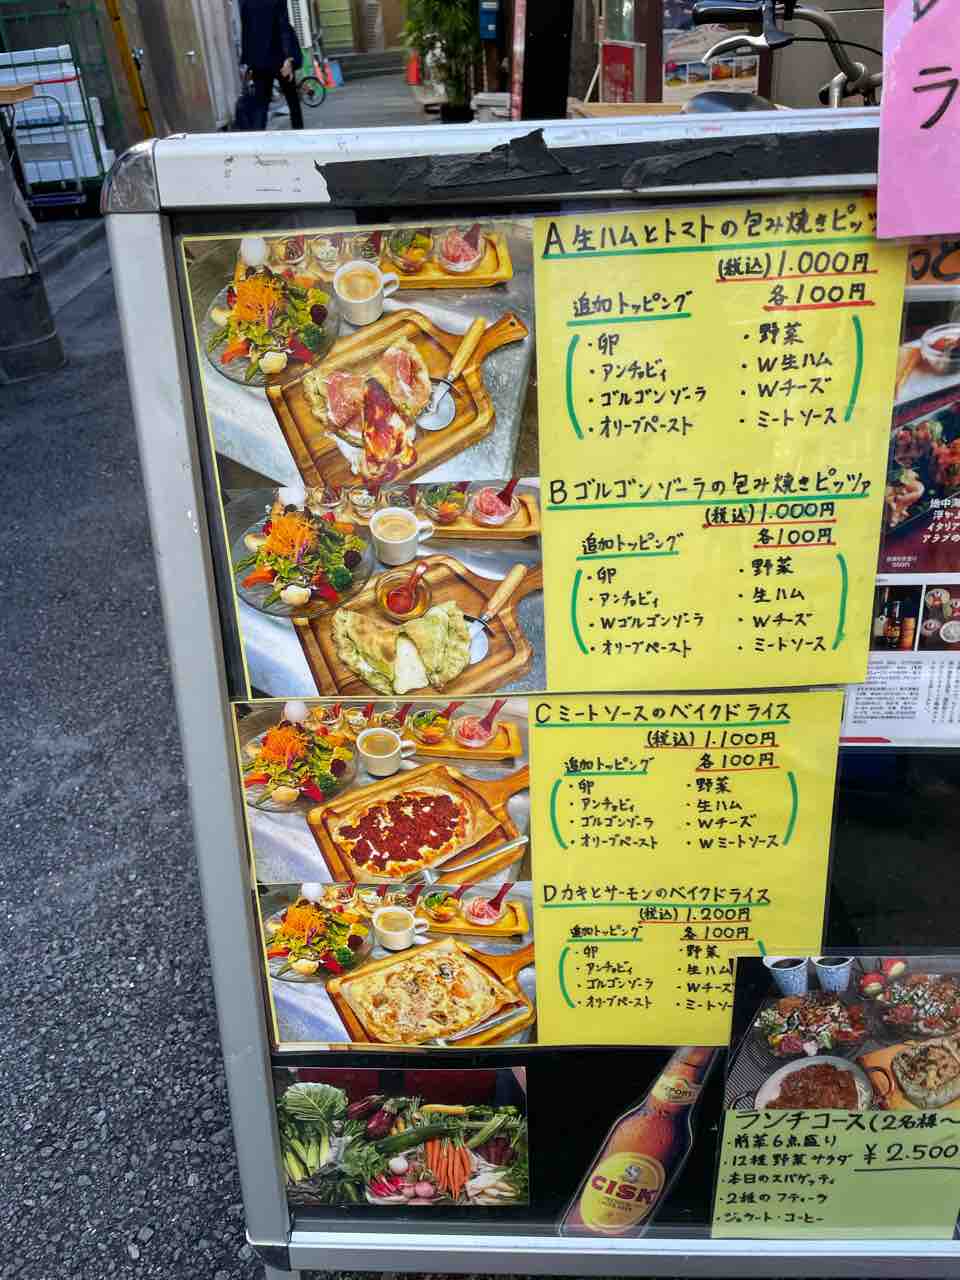 ラ
A生ハムとトマトの包み焼きピッツ
(税込)1.000円
追加トッピング 各100円
・卵 ・野菜
・アンチョビィ ・W生ハム
・ゴルゴンゾーラ ・Wチーズ
・オリーブペースト ・ミートソース
Bゴルゴンゾーラの包み焼きピッツァ
(税込)1.000円
追加トッピング 各100円
・卵 ・野菜
・アンチョビィ ・生ハム
・Wゴルゴンゾーラ ・Wチーズ
・オリーブペースト ・ミートソース
Cミートソースのベイクドライス
(税込)1.100円
追加トッピング 各100円
・卵 ・野菜
・アンチョビィ ・生ハム
・ゴルゴンゾーラ ・Wチーズ
・オリーブペースト ・Wミートソース
Dカキとサーモンのベイクドライス
(税込)1.200円
追加トッピング 各100円
・卵 ・野菜
・アンチョビィ ・生ハム
・ゴルゴンゾーラ ・Wチーズ
・オリーブペースト ・ミートソー
地中海
イタリア
アラブの
CISK
ランチコース(2名様〜
・前菜6点盛り
・12種野菜サラダ ¥2.500
・本日のスパゲッティ
・2種のフティーラ
・ジェラート・コーヒー